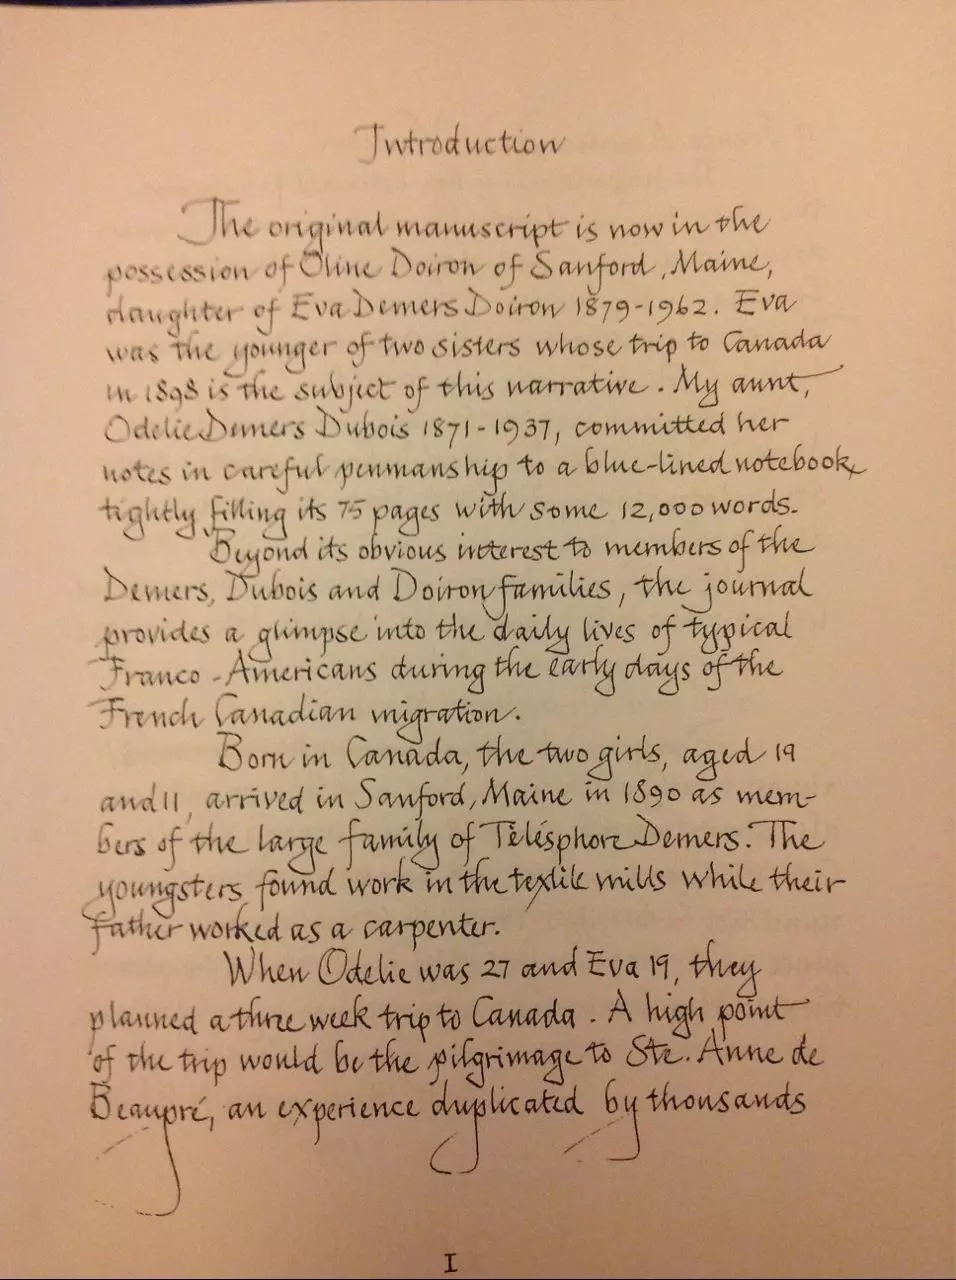 Introduction
The original manuscript is now in the
possession of Oline Doiron of Sanford, Maine,
daughter of Eva Demers Doiron 1879-1962. Eva
was the younger of two sisters whose trip to Canada
in 1898 is the subject of this narrative. My aunt,
Odelie Demers Dubois 1871-1937, committed her
notes in careful penmanship to a blue-lined notebook,
tightly filling its 75 pages with some 12,000 words.
Beyond its obvious interest to members of the
Demers, Dubois and Doiron families, the journal
provides a glimpse into the daily lives of typical
Franco-Americans during the early days of the
French Canadian migration.
Born in Canada, the two girls, aged 19
and 11, arrived in Sanford, Maine in 1890 as mem-
bers of the large family of Télésphore Demers. The
youngsters found work in the textile mills while their
father worked as a carpenter.
When Odelie was 27 and Eva 19, they
planned a three week trip to Canada. A high point
of the trip would be the pilgrimage to Ste. Anne de
Beaupré, an experience duplicated by thousands
I